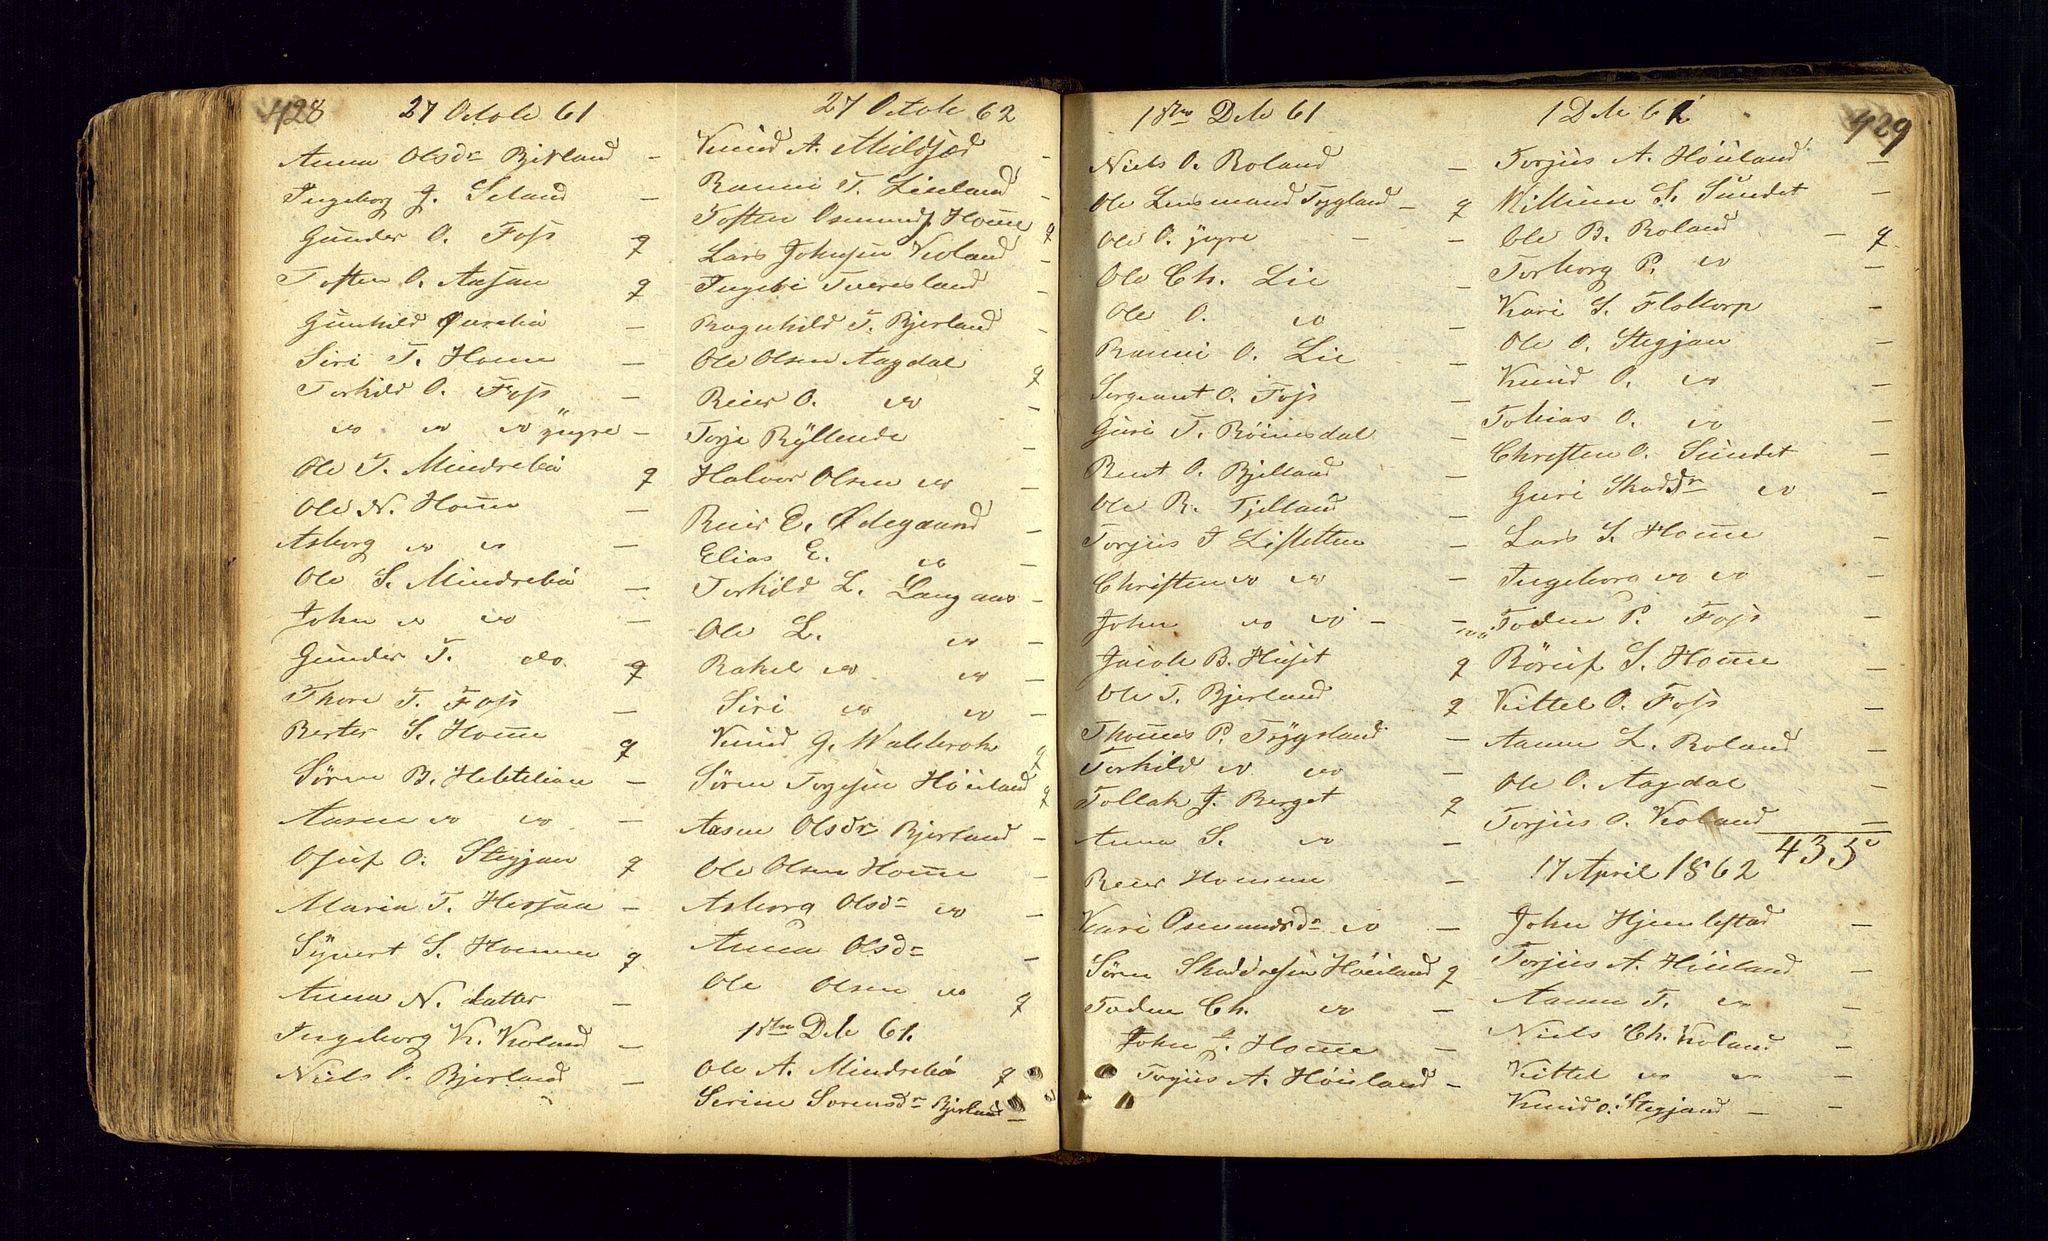 428
27 Octob 61
Anna Olsdr Bjerland -
Ingeborg J. Seland -
Gunder O. Foss g
Tosten O. Aasan g
Gunhild Øurebø -
Siri T. Home -
Torkild O. Foss -
do do do yngre -
Ole T. Mindrebø g
Ole N. Home -
Asborg do do -
Ole S. Mindrebø -
John do do -
Gunder T. do. g
Thore T. Foss -
Berter S. Home g
Søren B. Hebtelian -
Aasne do do -
Osuf O. Stegjan g
Maria T. Hessaa -
Syvert S. Homme g
Anna N. datter -
Ingeborg K. Koland -
Niels O. Bjerland -
27 Octob 62
Knud A. -
Ranni T. Liland -
Tosten Osmunds. Home g
Lars Johnsen Koland -
Ingebi Tveresland -
Ragnhild T. Bjerland -
Ole Olsen Aagdal g
Reier O. do -
Torje Ryllende -
Halvor Olsen do -
Reier E. Ødegaard -
Elias E. do -
Torkild L. Langaas -
Ole L. do -
Rakel do do -
Siri do do -
Knud G. Walebrok g
Søren Torjesen Høiland g
Aasne Olsdr Bjerland -
Ole Olsen Home -
Asborg Olsdr do -
Anna Olsdr -
Ole Olsen do g
1ste Debr 61.
Ole A. Mindrebø g
Serine Sorensdr Bjerland -
1ste Debr 61
Niels O. Roland -
Ole Lensmand Trygland - g
Ole O. yngre - -
Ole Ch. Lie -
Ole O. do -
Ranni O. Lie -
Sergeant O. Foss -
Guri T. Røinesdal -
Bent O. Bjelland -
Ole R. Fjelland -
Torjus J Lisletten -
Christen do do -
John do do - -
Jacob B. Huset g
Ole T. Bjerland g
Thomes P. Trygsland -
Torkild do do -
Tollak J. Berget g
Anna S. do -
Reier Homme -
Kari Osmundsdr do -
Søren Skaddesen Høiland g
Toden Ch. do -
John J. Home -
Torjus A. Høiland -
1 Debr 61
429
Torjus A. Høiland -
Willum S. Sundet -
Ole B. Roland - g
Torborg P. do -
Kari S. Flottorp -
Ole O. Stegjan -
Knud O. do -
Tobias O. do -
Christen O. Sundet -
Guri Skaddr do -
Lars S. Home -
Ingeborg do do -
Toden P. Foss -
Rørup S. Home -
Kittel O. Foss -
Aanne L. Roland -
Ole O. Aagdal -
Torjus O. Koland -
435
17 April 1862
John Hjemlestad -
Torjus A. Høiland -
Aanne T. do -
Niels Ch. Koland -
Kittel do do -
Knud O. Stegjand - -